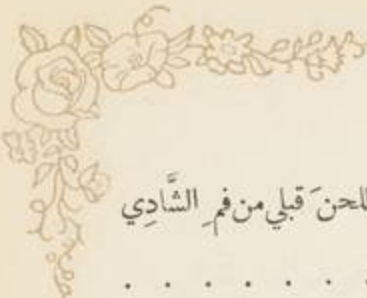 للحنَ قبلي من فمِ الشَّادِي
. . . . . . .